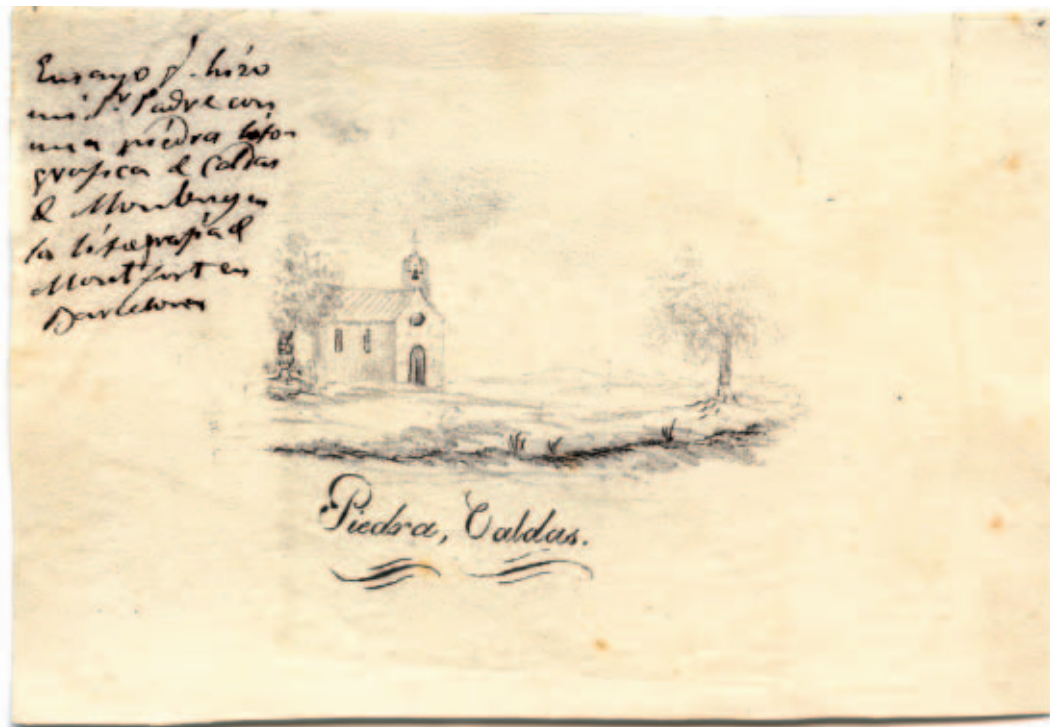 Ensayo q. hizo
mi Sr. Padre con
una piedra lito
grafica de Caldas
de Monbuy en
la litografia de
Montfort en
Barcelona
Piedra, Caldas.